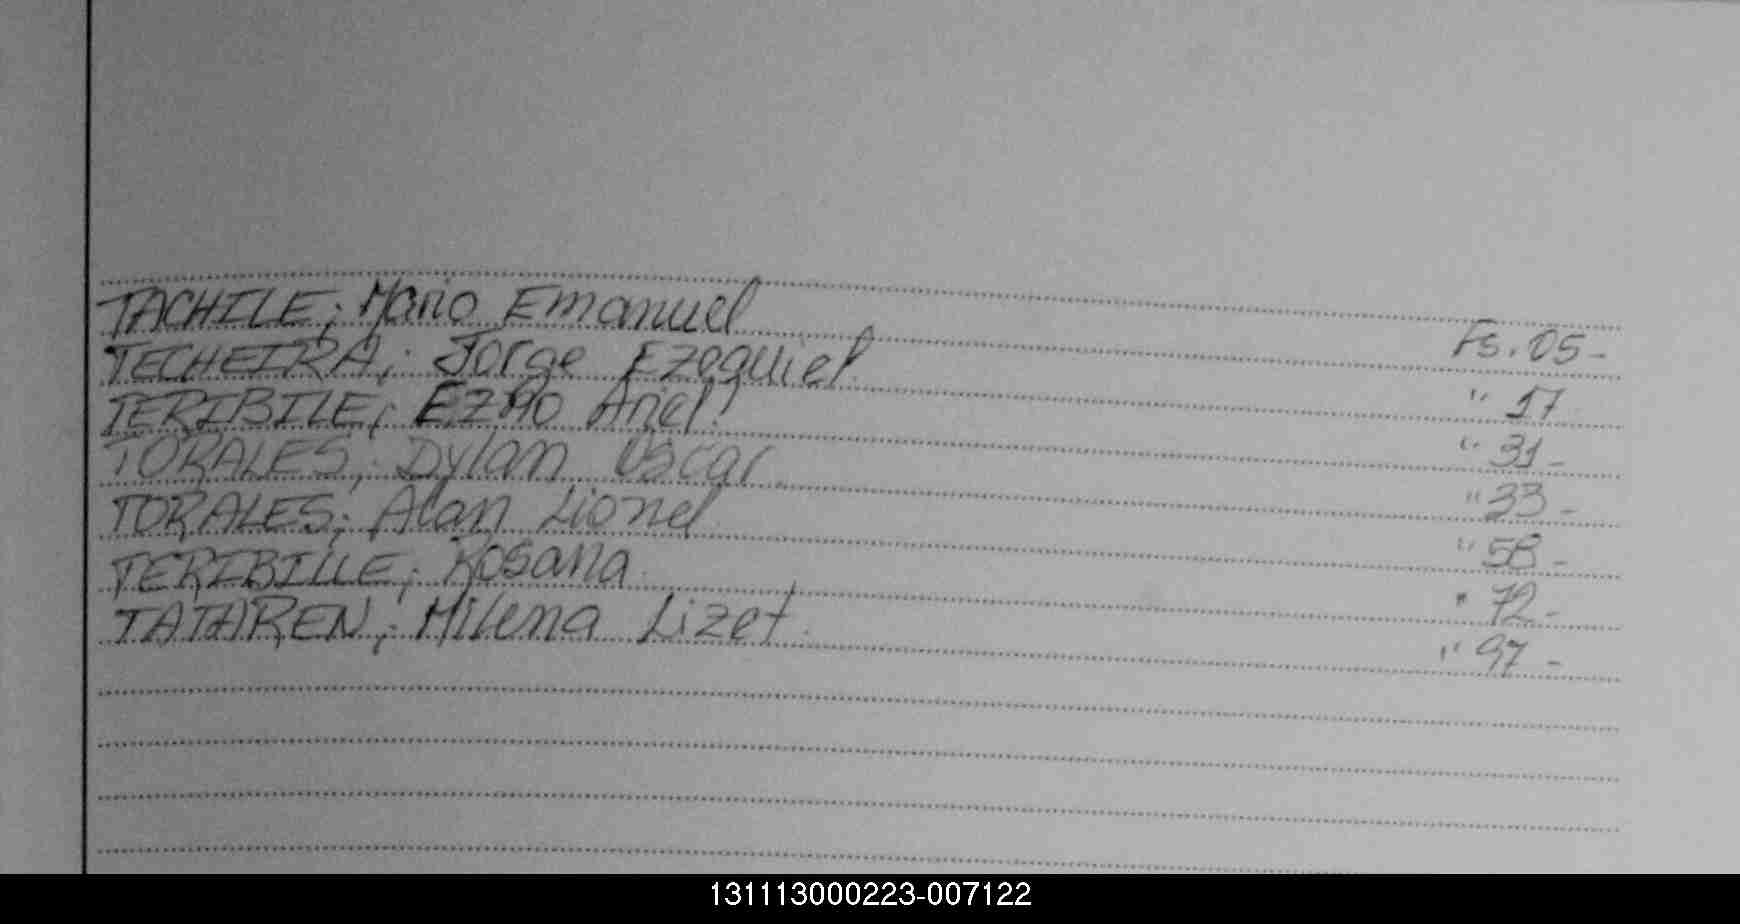 TACHILE; Mario Emanuel Fs. 05-
TECHEIRA; Jorge Ezequiel. " 17
TERIBILE; Ariel. " 31-
TORALES; Dylan Oscar " 33-
TORALES; Alan Lionel " 58-
TERIBILLE; Rosana. " 72-
TATAREN; Milena Lizet. " 97-
131113000223-007122